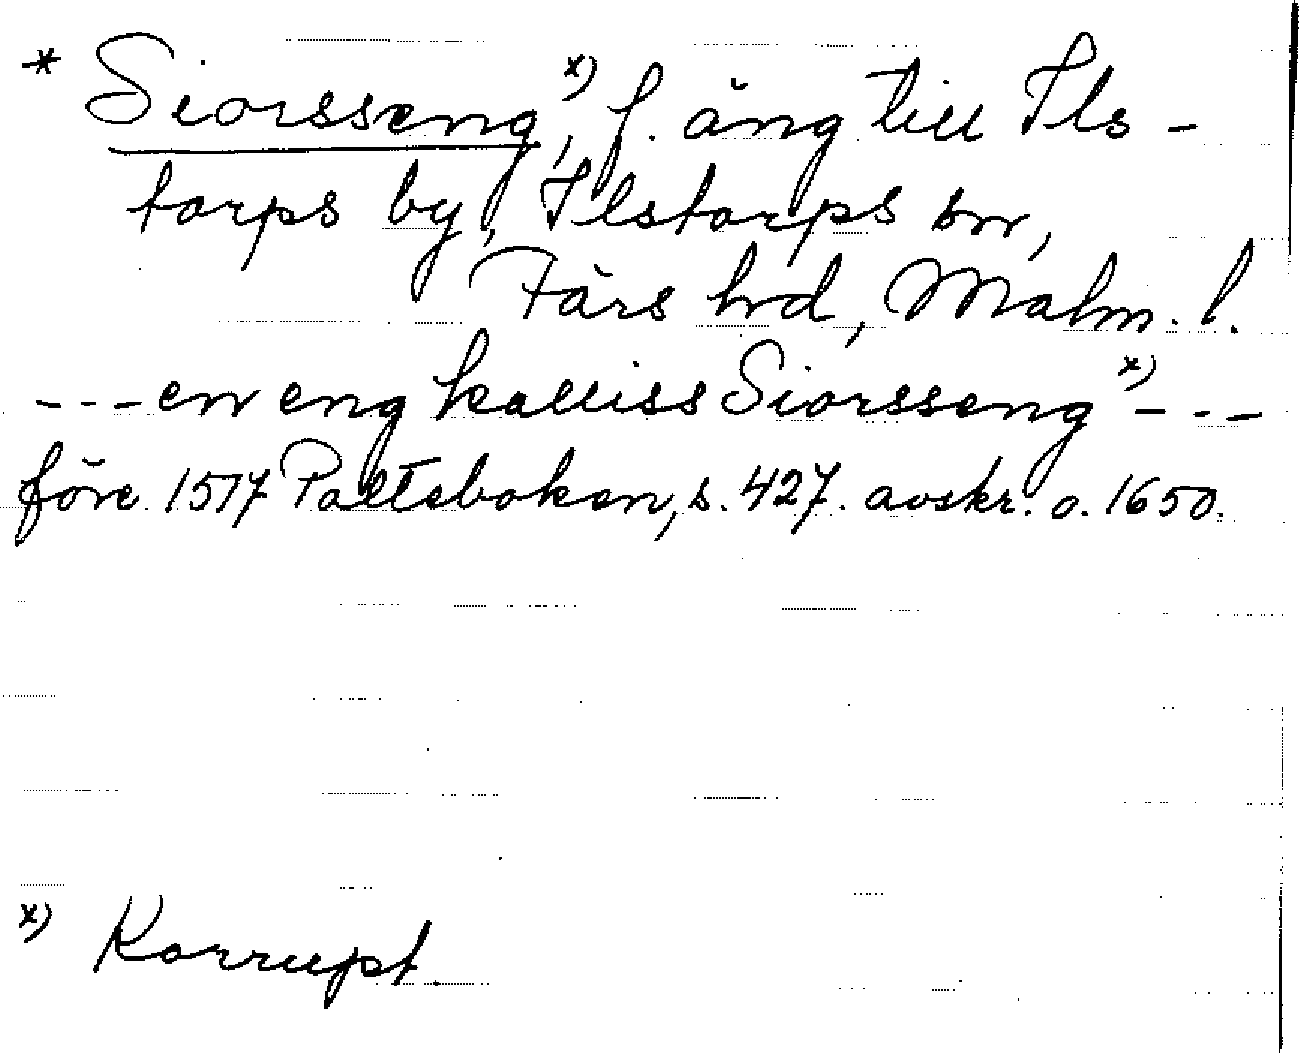 * Siorsseng x), f. äng till Ils-
torps by, Ilstorps sn,
Färs hd, Malm. l.
---en eng kalliss Siorsseng x) ---
före 1517 Palteboken, s. 427. avskr. o. 1650.
x) Korrupt.